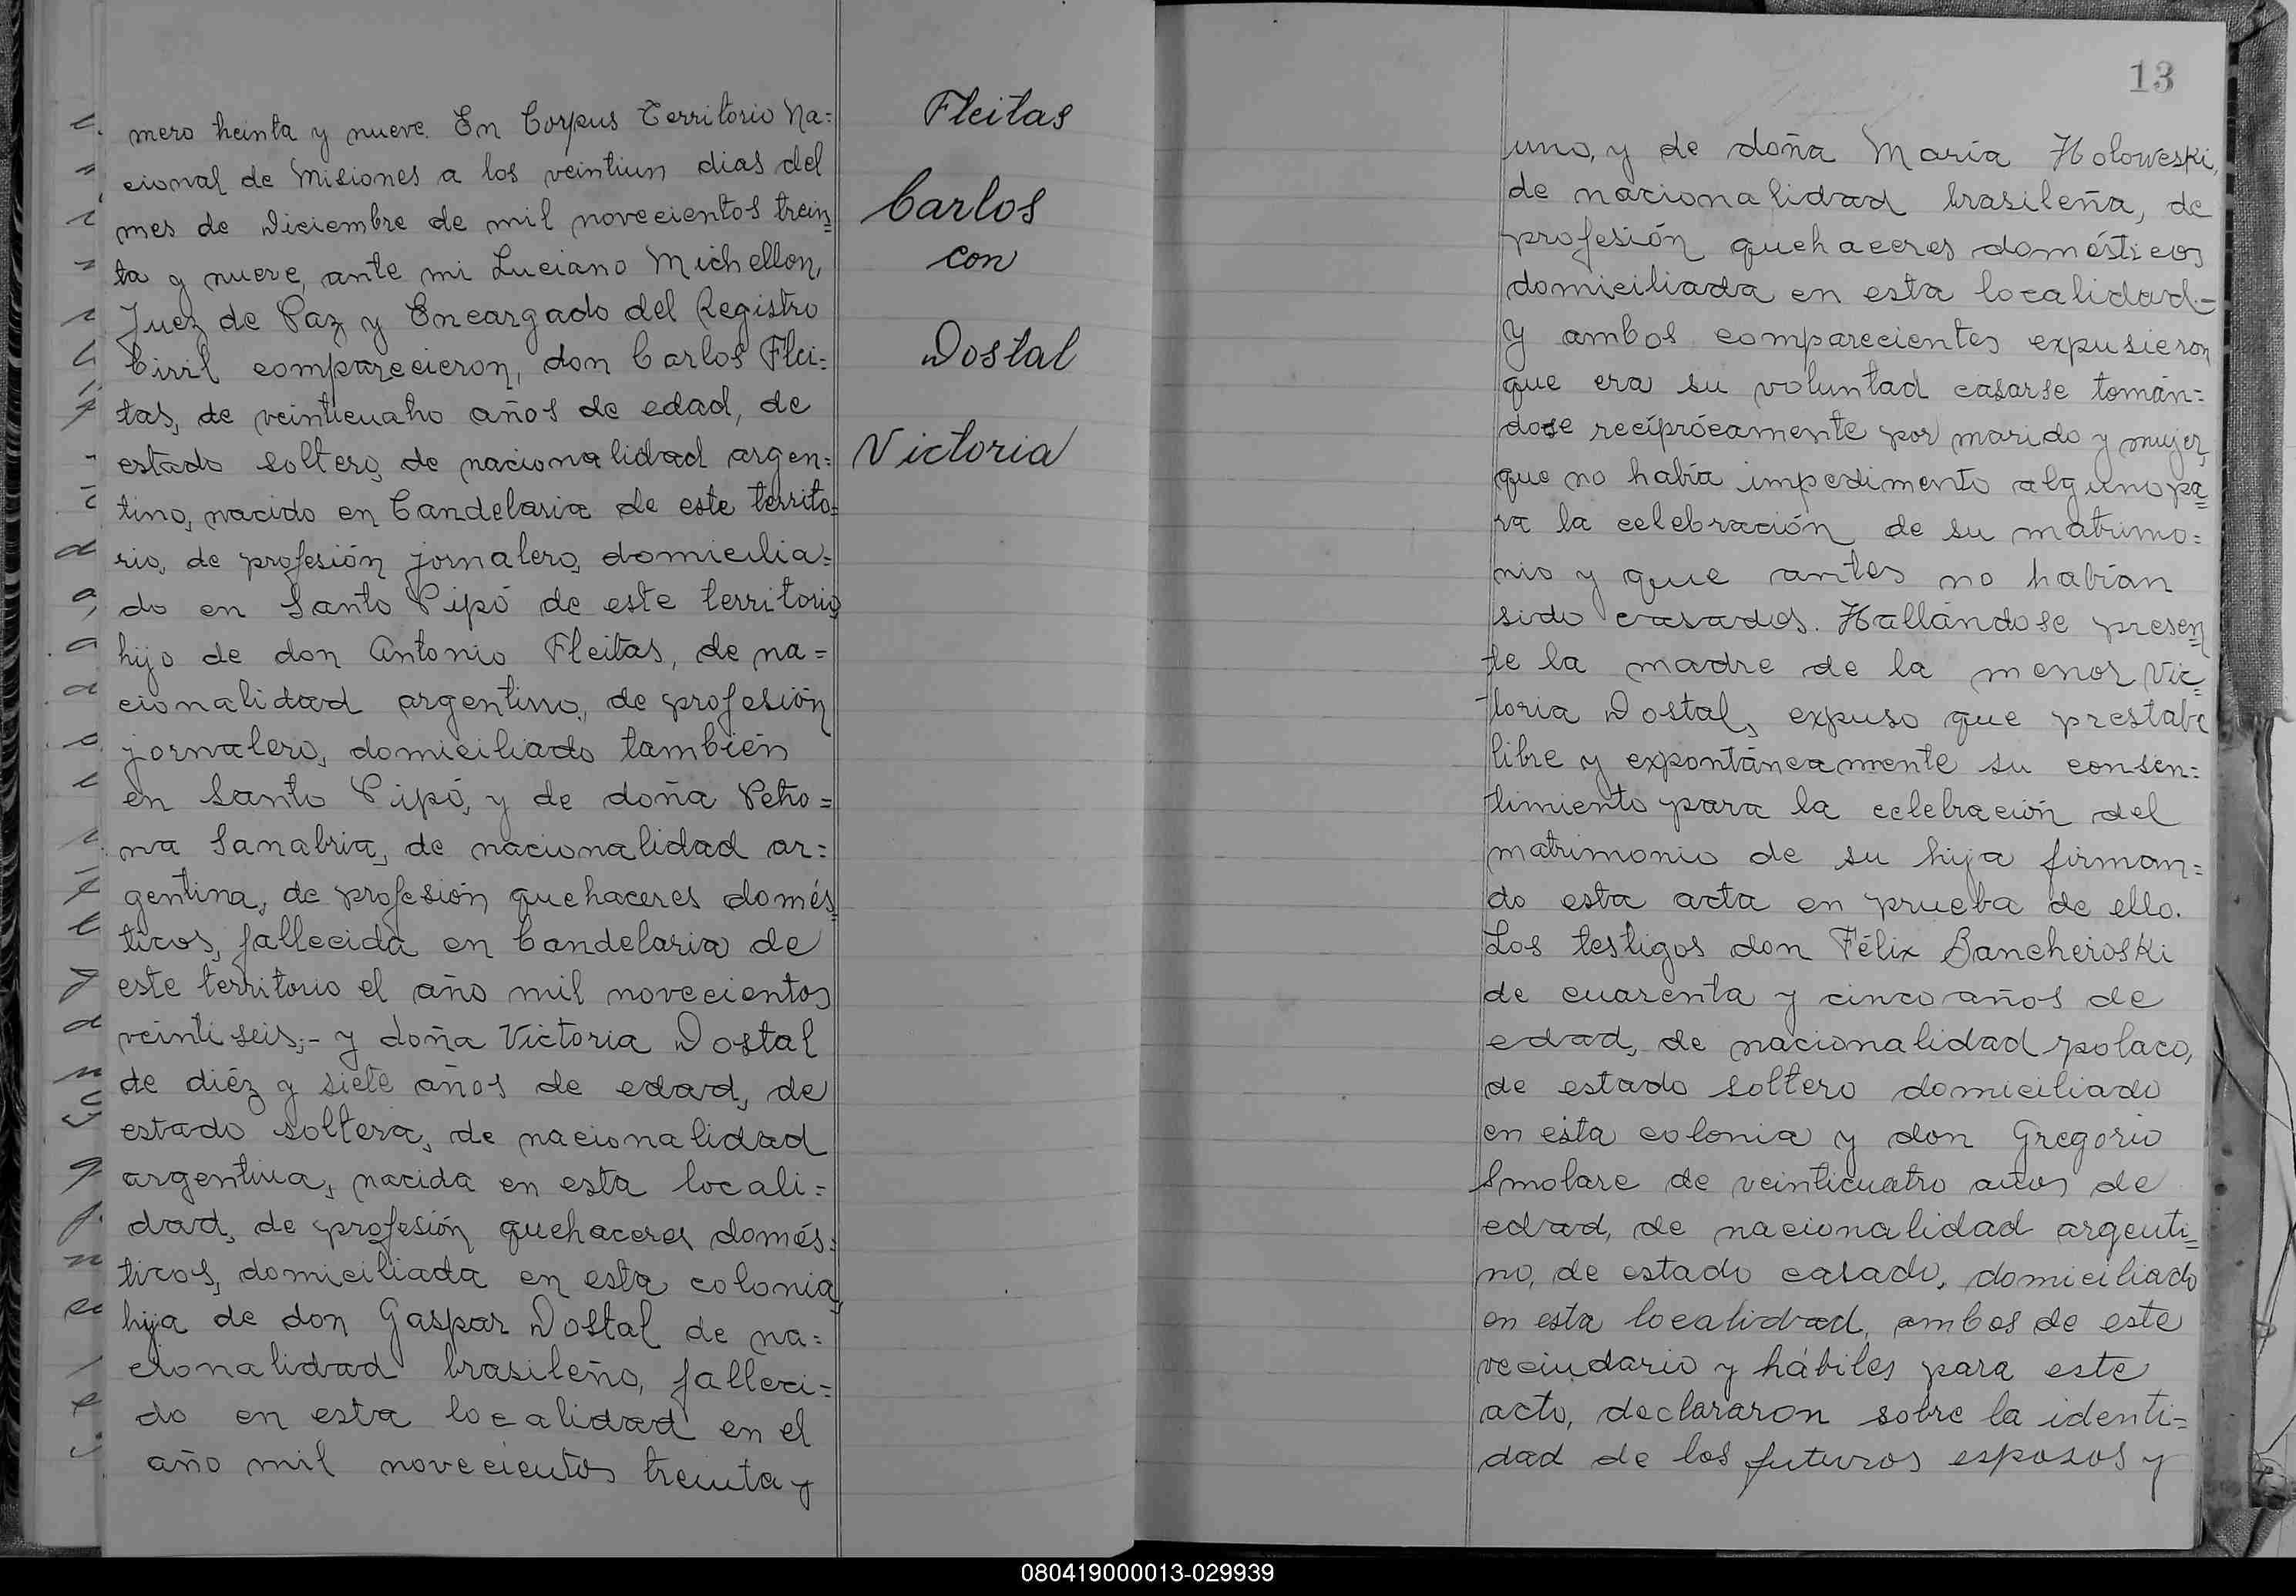 mero treinta y nueve. En Corpus Territorio Na=
cional de Misiones a los veintiun dias del
mes de Diciembre de mil novecientos trein=
ta y nueve, ante mi Luciano Michellon,
Juez de Paz y Encargado del Registro
Civil comparecieron, don Carlos Flei=
tas, de veinticuatro años de edad, de
estado soltero, de nacionalidad argen=
tino, nacido en Candelaria de este territo=
rio, de profesión jornalero, domicilia=
do en Santo Pipó de este territorio,
hijo de don Antonio Fleitas, de na=
cionalidad argentino, de profesión
jornalero, domiciliado también
en Santo Pipó, y de doña Petro=
na Sanabria, de nacionalidad ar=
gentina, de profesión quehaceres domés=
ticos, fallecida en Candelaria de
este territorio el año mil novecientos
veintiseis,- y doña Victoria Dostal
de diéz y siete años de edad, de
estado soltera, de nacionalidad
argentina, nacida en esta locali=
dad, de profesión quehaceres domés=
ticos, domiciliada en esta colonia,
hija de don Gaspar Dostal de na=
cionalidad brasileño, falleci=
do en esta localidad en el
año mil novecientos treinta y
Fleitas
Carlos
con
Dostal
Victoria
13
uno, y de doña María Holoweski,
de nacionalidad brasileña, de
profesión quehaceres domésticos
domiciliada en esta localidad.-
Y ambos comparecientes expusieron
que era su voluntad casarse tomán=
dose recíprócamente por marido y mujer,
que no había impedimento alguno pa=
ra la celebración de su matrimo=
nio y que antes no habían
sido casados. Hallándose presen=
te la madre de la menor Vic=
toria Dostal, expuso que prestaba
libre y expontáneamente su consen=
timiento para la celebración del
matrimonio de su hija firman=
do esta acta en prueba de ello.
Los testigos don Félix Bancheroski
de cuarenta y cinco años de
edad, de nacionalidad polaco,
de estado soltero domiciliado
en esta colonia y don Gregorio
Smolare de veinticuatro años de
edad, de nacionalidad argenti=
no, de estado casado, domiciliado
en esta localidad, ambos de este
vecindario y hábiles para este
acto, declararon sobre la identi=
dad de los futuros esposos y
080419000013-029939